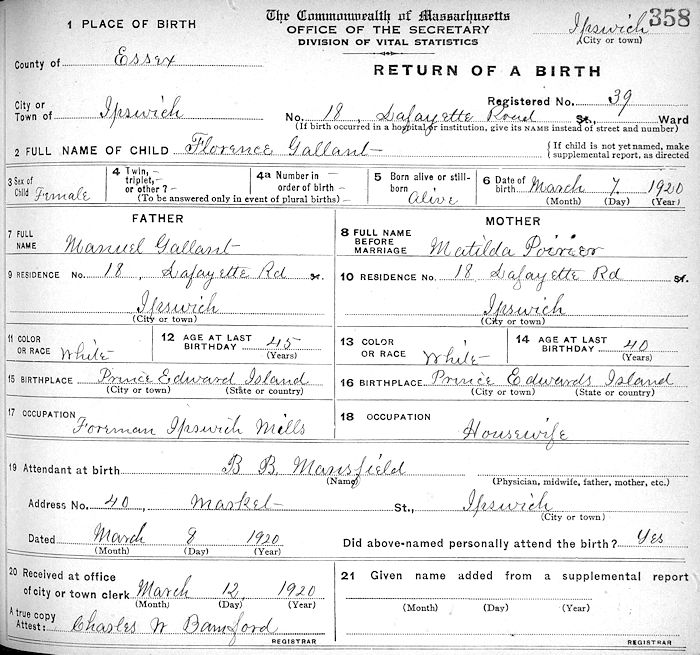 The Commonwealth of Massachusetts
OFFICE OF THE SECRETARY
DIVISION OF VITAL STATISTICS
Ipswich 358
(City or town)
1 PLACE OF BIRTH
County of Essex
RETURN OF A BIRTH
Registered No. 39
City or Town of Ipswich No. 18, Lafayette Road St., Ward
(If birth occurred in a hospital or institution, give its NAME instead of street and number)
2 FULL NAME OF CHILD Florence Gallant { If child is not yet named, make supplemental report, as directed
3 Sex of Child Female 4 Twin, triplet, or other? - 4a Number in order of birth - 5 Born alive or still-born Alive 6 Date of birth March 7, 1920
(To be answered only in event of plural births) (Month) (Day) (Year)
FATHER MOTHER
7 FULL NAME Manuel Gallant 8 FULL NAME BEFORE MARRIAGE Matilda Poirier
9 RESIDENCE No. 18, Lafayette Rd St. 10 RESIDENCE No. 18 Lafayette Rd St.
Ipswich Ipswich
(City or town) (City or town)
11 COLOR OR RACE White 12 AGE AT LAST BIRTHDAY 45 (Years) 13 COLOR OR RACE White 14 AGE AT LAST BIRTHDAY 40 (Years)
15 BIRTHPLACE Prince Edward Island 16 BIRTHPLACE Prince Edwards Island
(City or town) (State or country) (City or town) (State or country)
17 OCCUPATION Foreman Ipswich Mills 18 OCCUPATION Housewife
19 Attendant at birth B B. Mansfield
(Name) (Physician, midwife, father, mother, etc.)
Address No. 40, Market St., Ipswich
(City or town)
Dated March 8 1920 Did above-named personally attend the birth? Yes
(Month) (Day) (Year)
20 Received at office of city or town clerk March 12, 1920 21 Given name added from a supplemental report
(Month) (Day) (Year) (Month) (Day) (Year)
A true copy Attest: Charles W Bamford
REGISTRAR REGISTRAR